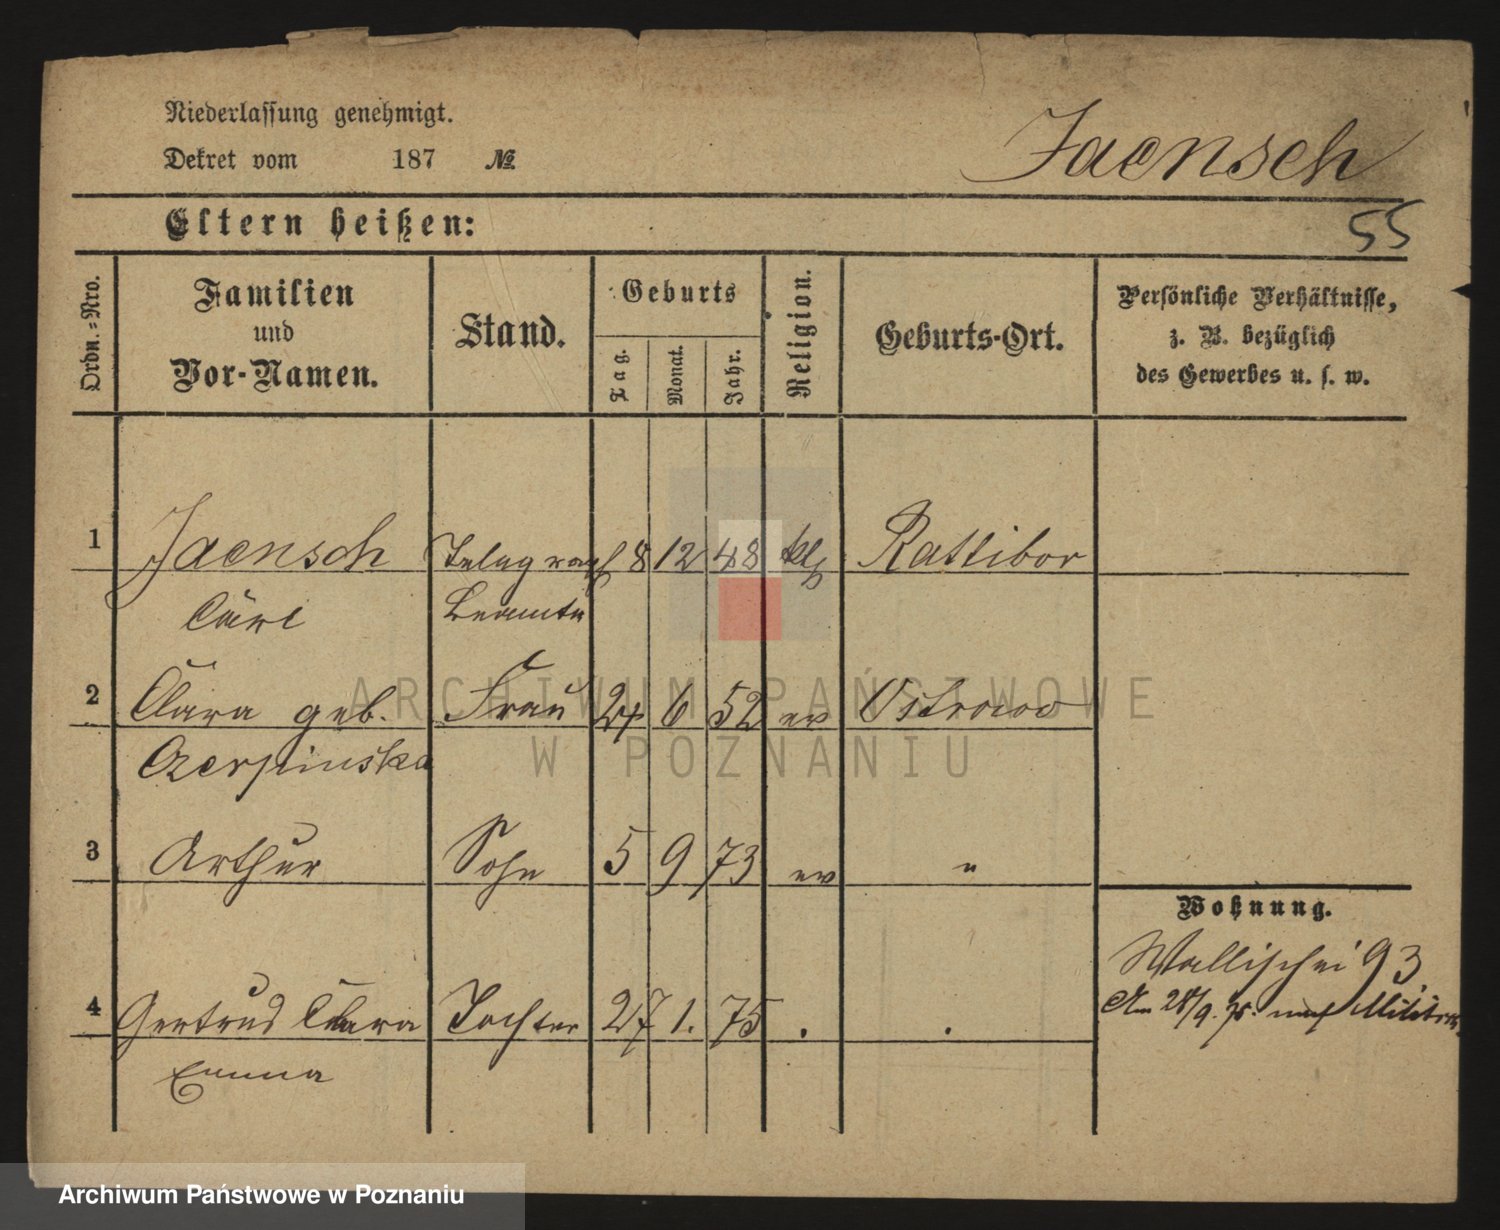 Niederlassung genehmigt.
Dekret vom 187 №
Jaensch
Eltern heißen:
55
Ordn.=Nro.
Familien
und
Vor-Namen.
Stand.
Geburts
Tag.
Monat.
Jahr.
Religion.
Geburts-Ort.
Persönliche Verhältnisse,
z. B. bezüglich
des Gewerbes u. s. w.
1 Jaensch Telegraph 8 12 48 kth Rattibor
Carl Beamte
2 Clara geb. Frau 24 6 52 ev Ostrowo
Czerpinska
3 Arthur Sohn 5 9 73 ev "
Wohnung.
Wallischei 93
4 Gertrud Clara Tochter 27 1. 75 . .
Am 28/9. 75. nach
Emma
ARCHIWUM PAŃSTWOWE
W POZNANIU
Archiwum Państwowe w Poznaniu